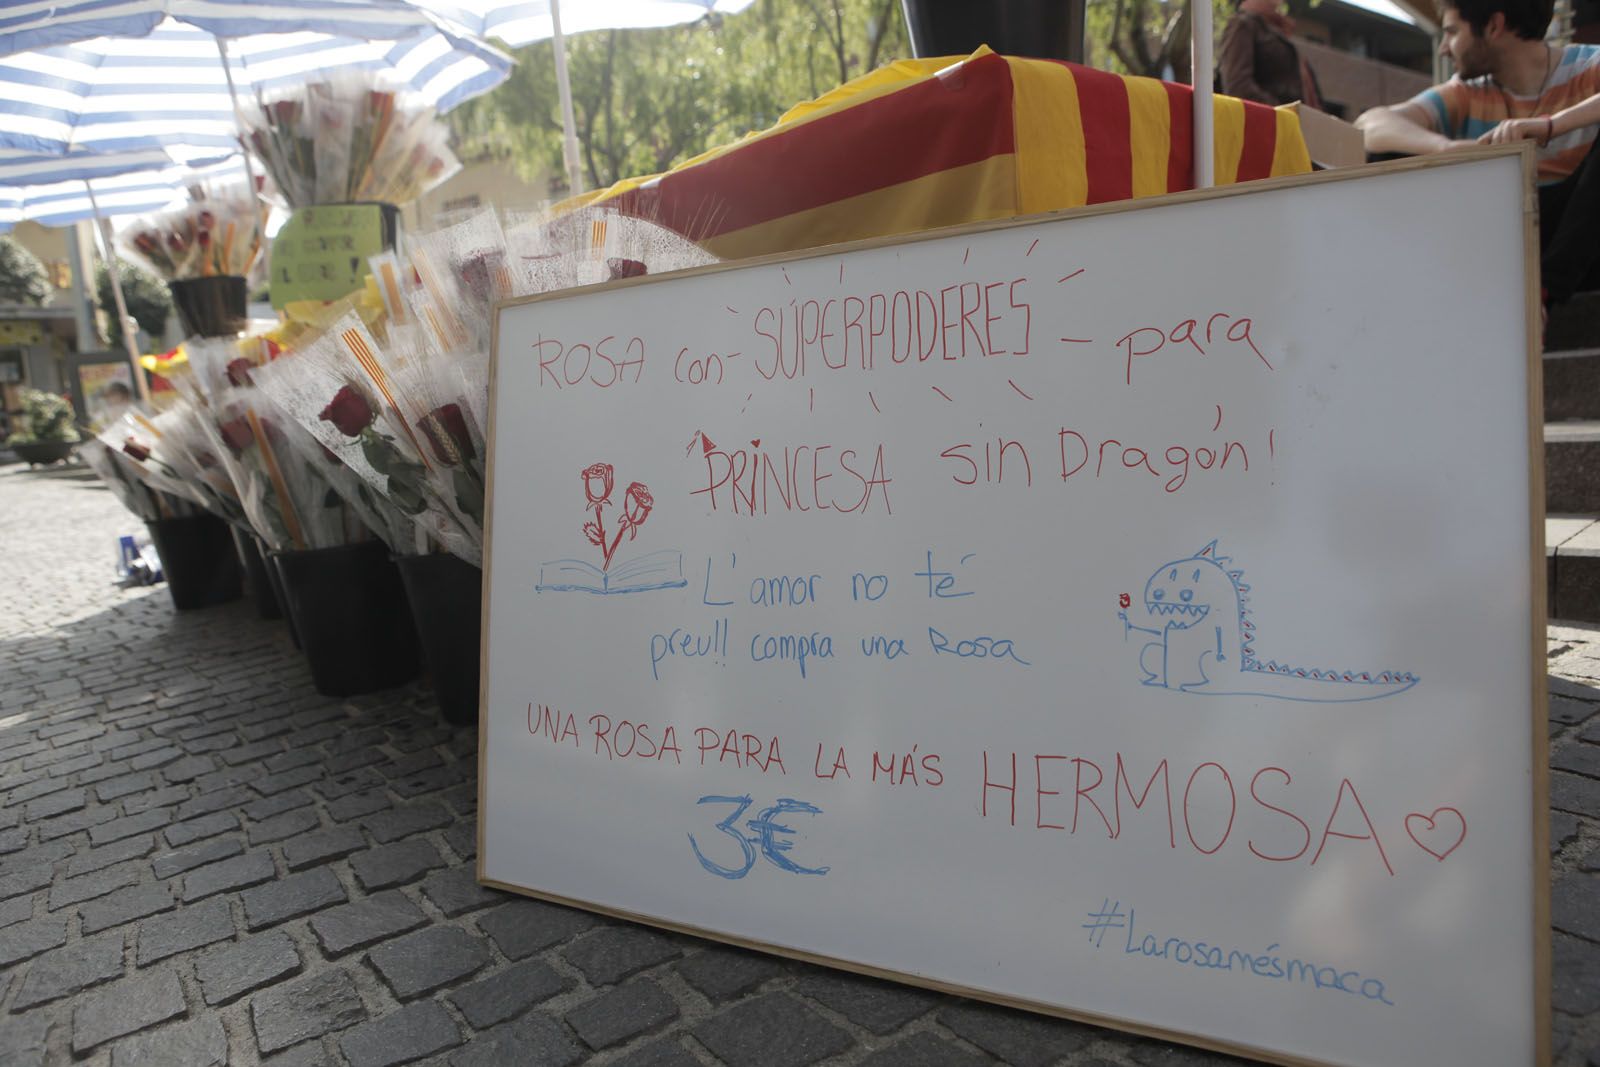 ROSA con - SÚPERPODERES - para
PRINCESA sin Dragón!
L'amor no té
preu!! compra una Rosa
UNA ROSA PARA LA MÁS HERMOSA
3€
#Larosamésmaca